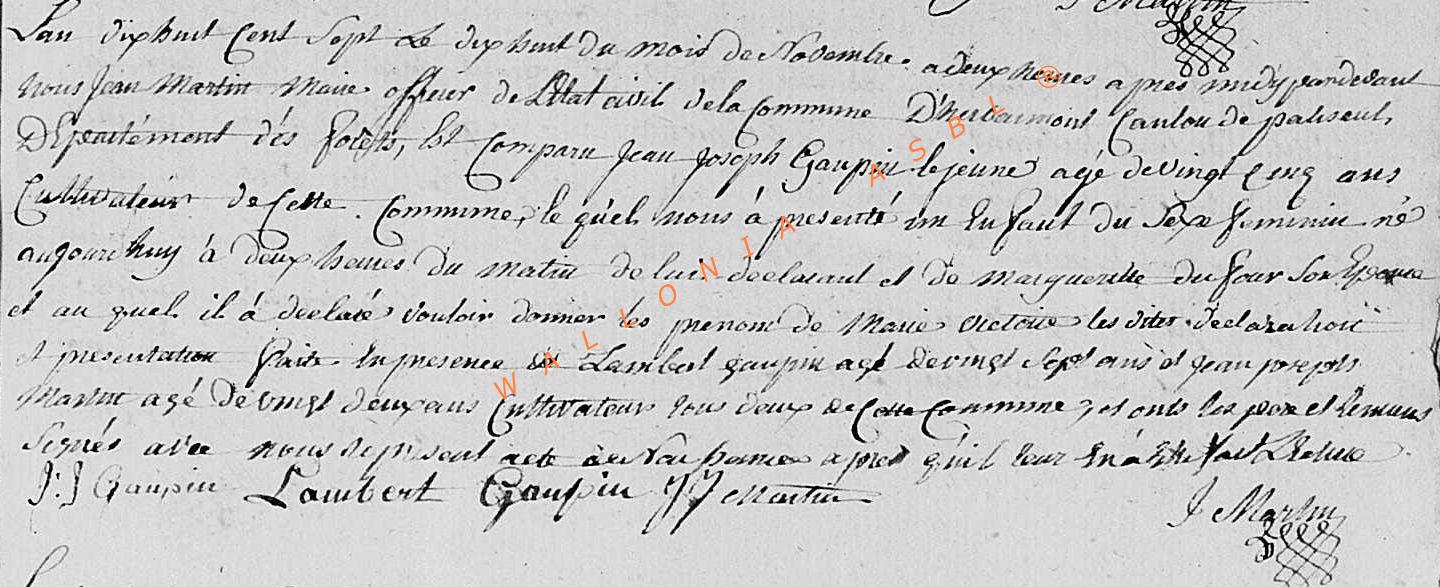 J Martin
L'an dixhuit Cent Sept Le dixhuit du mois de Novembre. a deux heures apres midy pardevant
nous Jean Martin Maire officier de L'Etat civil de la Commune D'herbaimont Canton de paliseul,
Département dés foréts, Est Comparu Jean Joseph Gaupin le jeune agé de vingt cinq ans
Cultivateur de Cette Commune, le quel nous à presenté un Enfant du Sexe feminin né
aujourdhuy à deux heures du matin de lui declarant et de margueritte du four Son Epouse
et au quel il à declaré vouloir donner les prenom de Marie victoire les dites declaration
et presentation faite En presence de Lambert gaupin agé de vingt Sept ans et Jean joseph
Martin agé de vingt deux ans Cultivateur tous deux de Cette Commune, et onts les pere et temoins
Signés avec nous le present acte de Naissance apres qu'il leur En à été fait Lecture
J: J Gaupin Lambert Gaupin JJ Martin
J Martin
WALLONIA ASBL ®